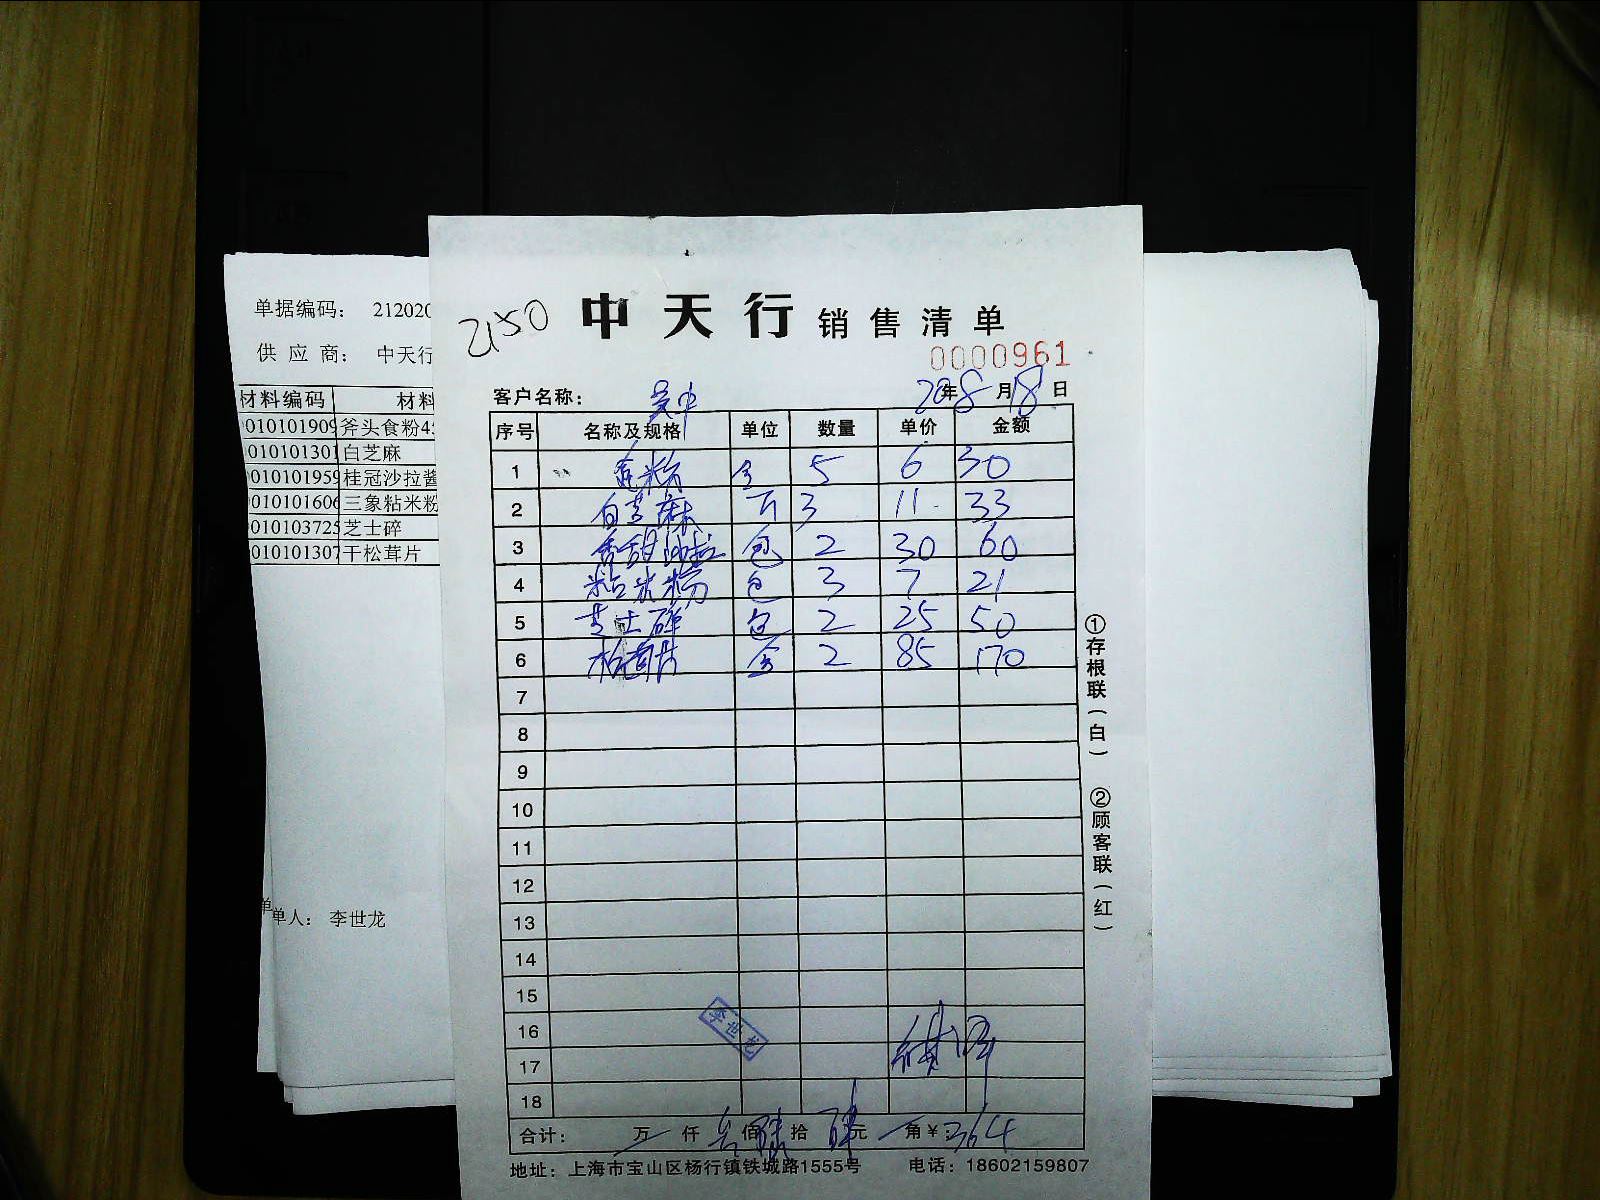 单据编码： 212020
供 应 商： 中天行
材料编码 材料
010101909 斧头食粉4
010101301 白芝麻
010101959 桂冠沙拉酱
010101606 三象粘米粉
010103725 芝士碎
010101307 干松茸片
单人： 李世龙
2150
中天行 销售清单
0000961
客户名称： 吴中 2018年8月18日
序号 名称及规格 单位 数量 单价 金额
1 食粉 盒 5 6 30
2 白芝麻 斤 3 11 33
3 香甜沙拉 包 2 30 60
4 粘米粉 包 3 7 21
5 芝士碎 包 2 25 50
6 松茸片 盒 2 85 170
7
8
9
10
11
12
13
14
15
16
17
18
李世龙
合计： 万 仟 叁佰 陆拾 肆元 角 ￥：364
地址：上海市宝山区杨行镇铁城路1555号 电话：18602159807
①存根联（白）
②顾客联（红）